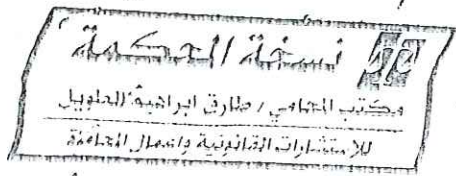 نسخة المحكمة
مكتب المحامي / طارق ابراهيم الطويل
للاستشارات القانونية واعمال المحاماة